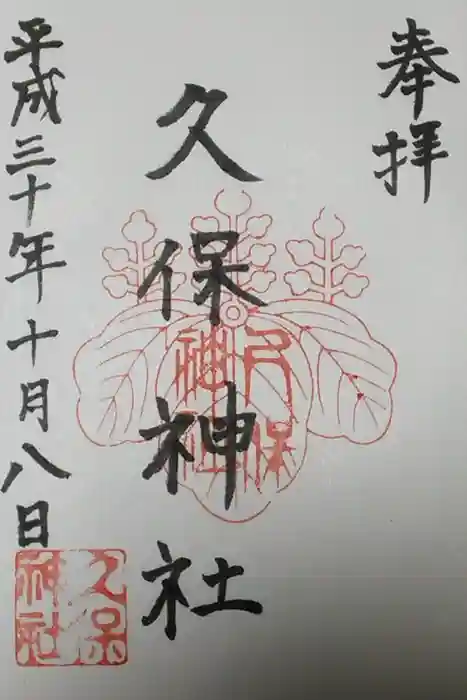 奉拝
久保神社
久保
神社
平成三十年十月八日
久保
神社